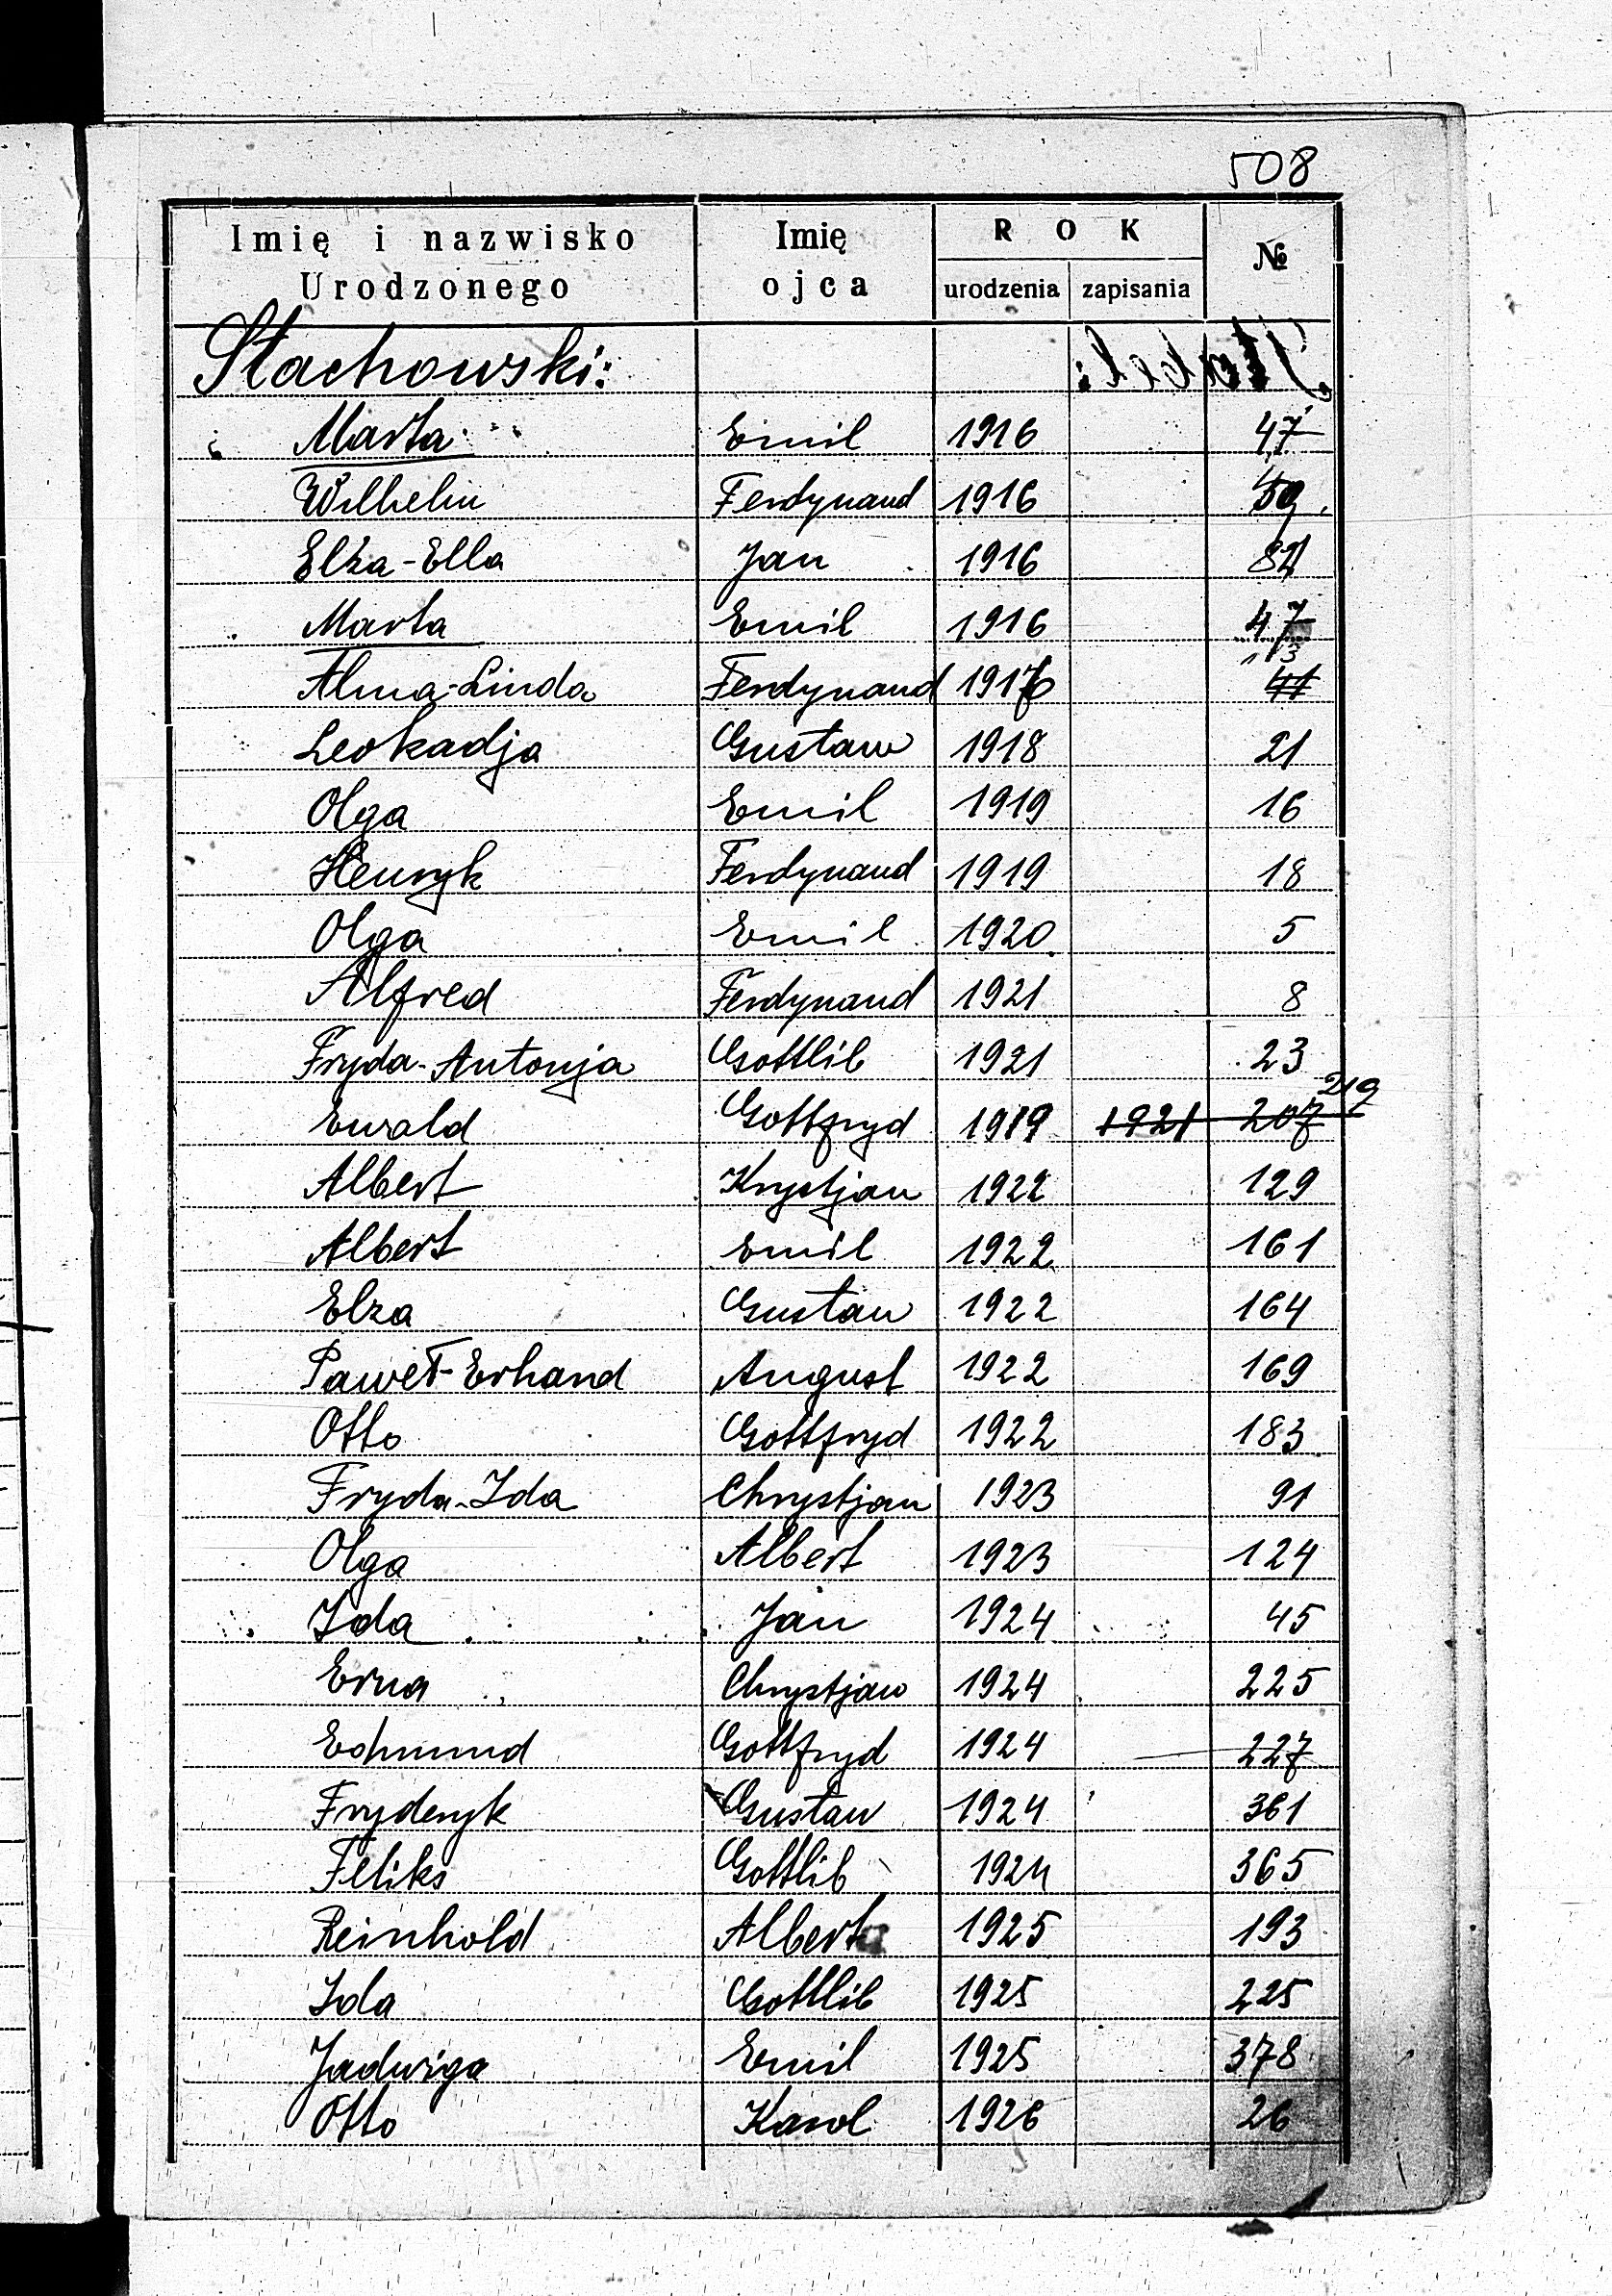 508
Imię i nazwisko Urodzonego Imię ojca ROK urodzenia zapisania №
Stachowski:
Marta Emil 1916 47
Wilhelm Ferdynand 1916
Elza-Ella Jan 1916 82
Marta Emil 1916 47
Alma-Linda Ferdynand 1916 13 41
Leokadja Gustaw 1918 21
Olga Emil 1919 16
Henryk Ferdynand 1919 18
Olga Emil 1920 5
Alfred Ferdynand 1921 8
Fryda-Antonja Gottlib 1921 23
Ewald Gottfryd 1919 1921 207 219
Albert Krystjan 1922 129
Albert Emil 1922 161
Elza Gustaw 1922 164
Paweł-Erhand August 1922 169
Otto Gottfryd 1922 183
Fryda-Ida Chrystjan 1923 91
Olga Albert 1923 124
Ida Jan 1924 45
Erna Chrystjan 1924 225
Edmund Gottfryd 1924 227
Fryderyk Gustaw 1924 361
Feliks Gottlib 1924 365
Reinhold Albert 1925 193
Ida Gottlib 1925 225
Jadwiga Emil 1925 378
Otto Karol 1926 26